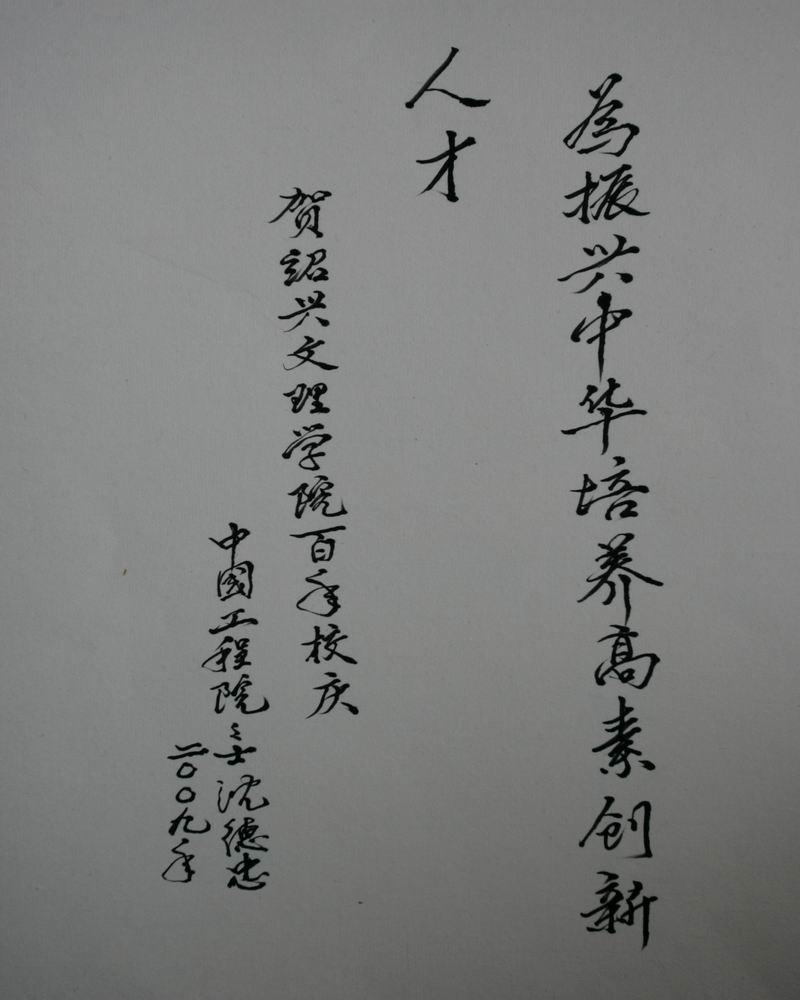 為振兴中华培养高素创新
人才
贺紹兴文理学院百年校庆
中國工程院々士沈德忠
二〇〇九年